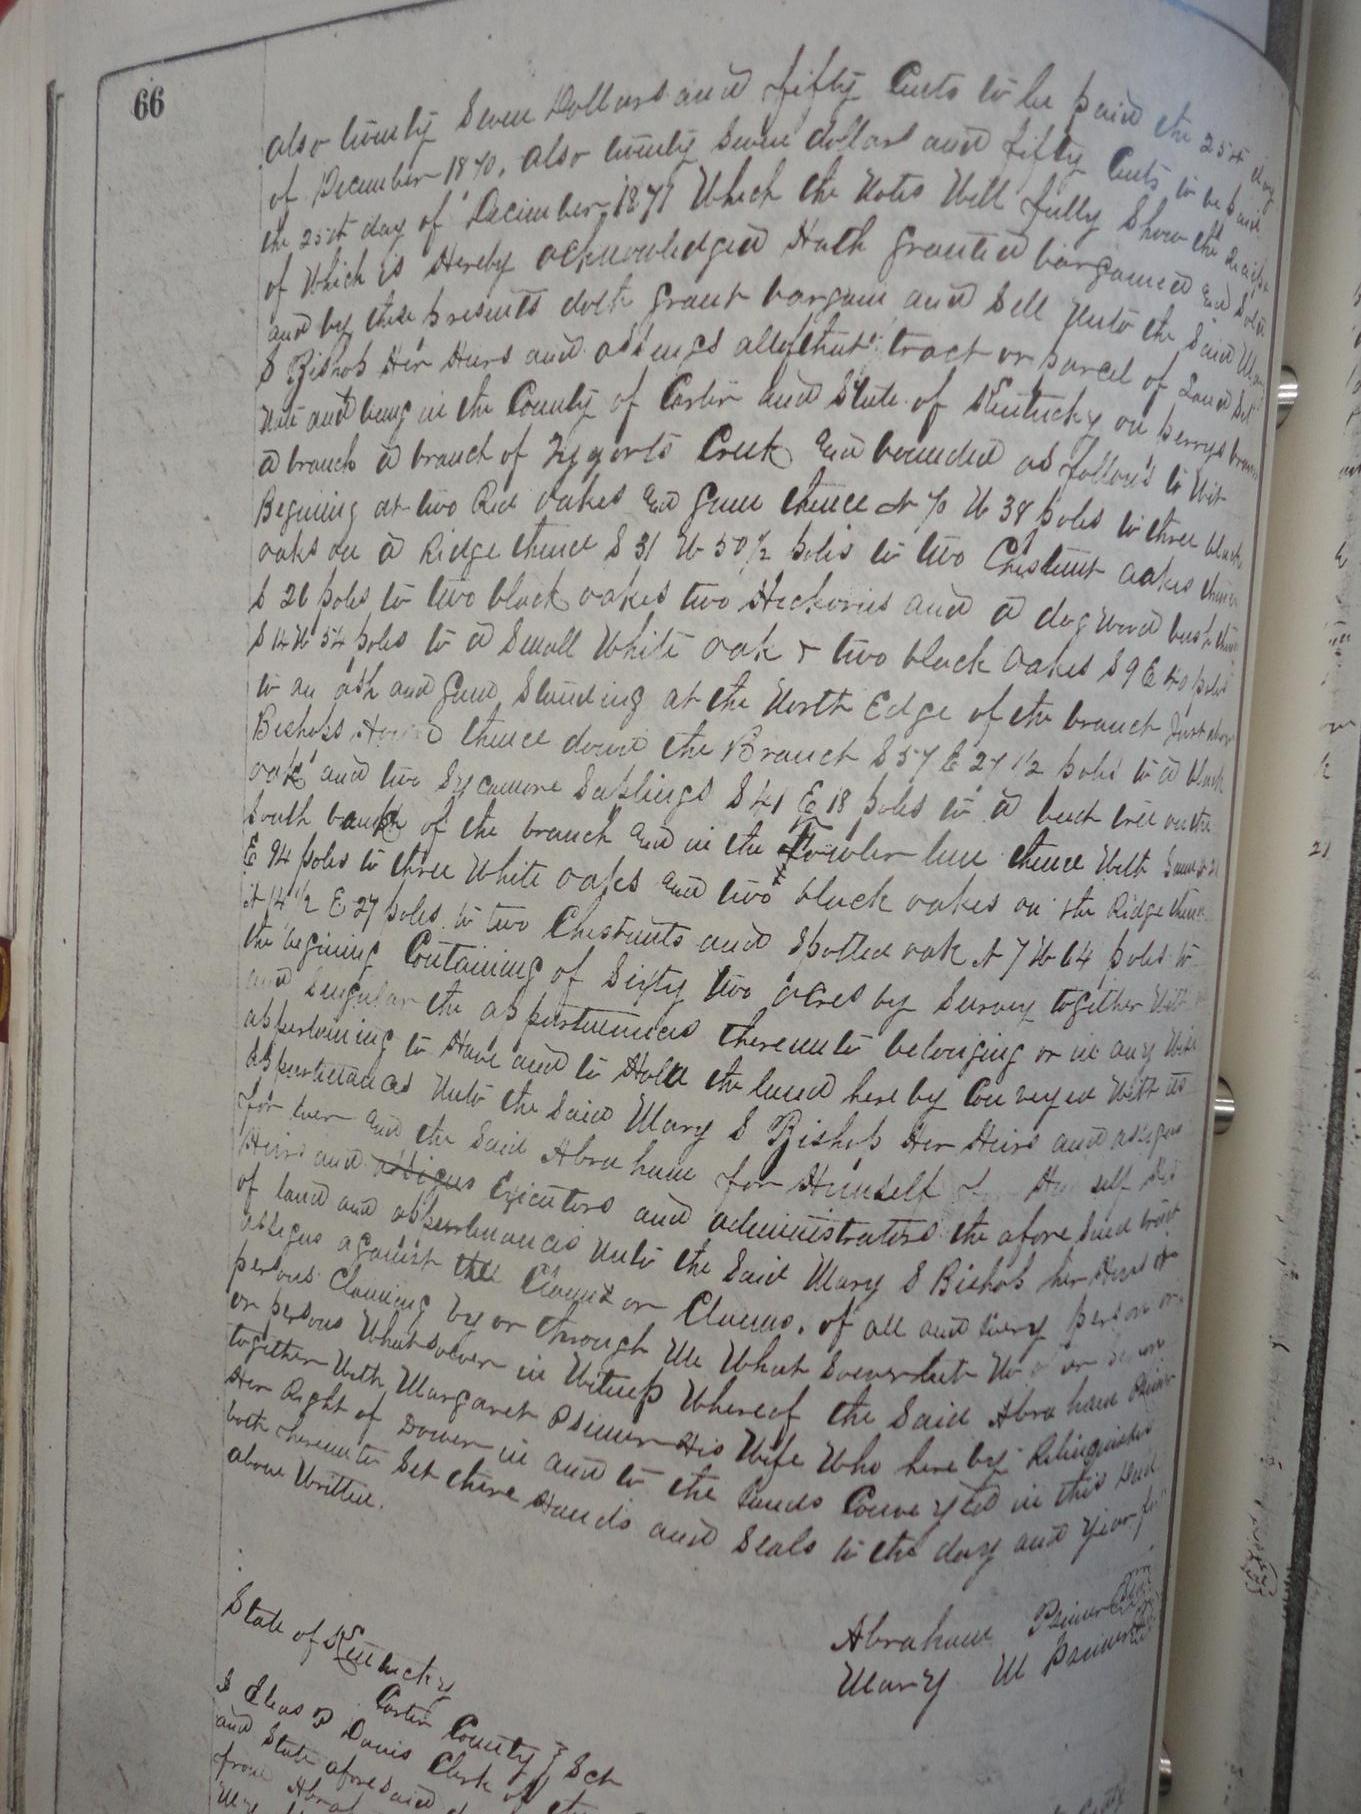 66
also twenty Seven Dollars and fifty Cents to be paid the 25th day
of December 1870, also twenty Seven dollars and fifty Cents to be paid
the 25th day of December 1871 Which the Notes Will fully Show the
of Which is Hereby acknowledged Hath granted bargained and Sold
and by these presents doth grant bargain and Sell Unto the Said
S Bishop Her Heirs and assings all that tract or parcel of Land
and being in the County of Carter and State of Kentucky on perrys
a branch a branch of Tygerts Creek and bounded as follows to Wit
Begining at two Red oakes and gum thence N W 38 poles to three black
oaks on a Ridge thence S 31 W 50 1/2 poles to two Chestnut oakes thence
S 26 poles to two black oakes two Hickories and a dogwood bush thence
S 14 W 54 poles to a Small White oak & two black oakes S 9 E 40 poles
to an ash and gum Standing at the North Edge of the branch Just above
Bishops thence down the Branch S 57 E 27 1/2 poles to a black
oak and two Sycamore Saplings S 41 E 18 poles to a beech tree on the
South bank of the branch and in the Fowler line thence With Same
E 94 poles to three White oaks and two black oakes on the Ridge thence
N 14 1/2 E 27 poles to two Chestnuts and Spotted oak N 7 W 64 poles to
the begining Containing of Sixty two acres by Survey together With
and Singular the appertinances thereunto belonging or in any Wise
appertaining to Have and to Hold the land hereby Conveyed With its
appertinances Unto the Said Mary S Bishop Her Heirs and assigns
for ever and the Said Abraham for Himself self
Heirs and assigns Executors and administrators the afore Said tract
of land and appertinances Unto the Said Mary S Bishop her Heirs or
assigns against the Claims or Claims, of all and Every person or
persons Claiming by or through Me What Soever but
or persons Whatsoever in Witness Whereof the Said Abraham
together With Margaret Psimer His Wife Who hereby Relinquishes
Her Right of Dower in and to the Lands Conveyed in this Deed
both hereunto Set there Hands and Seals to the day and Year
above Written.
Abraham Psimer
Mary M Psimer
State of Kentucky
Carter County } Sct
I Elias P Davis Clerk of the
and State aforesaid
from